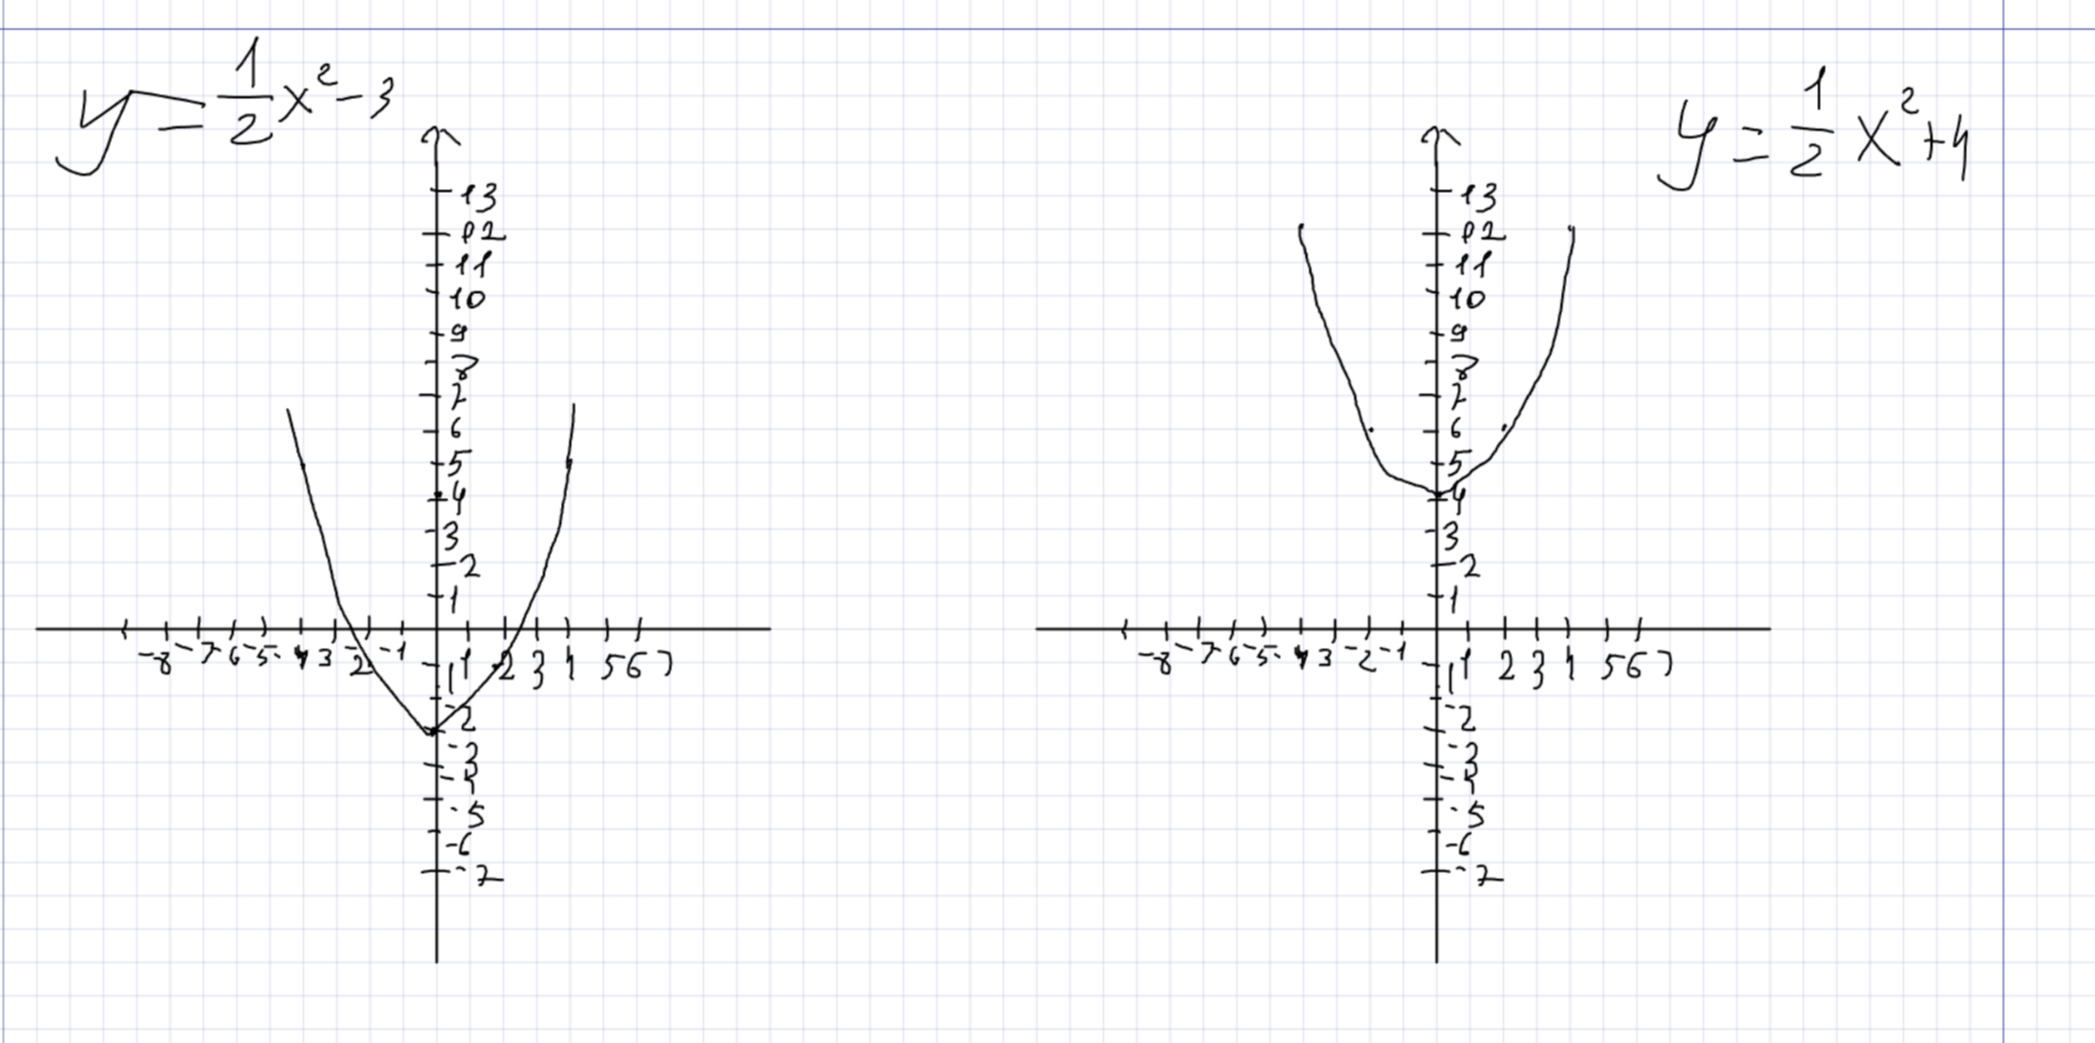 y = 1/2 x² - 3
13
12
11
10
9
8
7
6
5
4
3
2
1
-8 -7 -6 -5 -4 3 -2 -1 1 2 3 4 5 6 7
-2
-3
-4
-5
-6
-7
y = 1/2 x² + 4
13
12
11
10
9
8
7
6
5
4
3
2
1
-8 -7 -6 -5 -4 3 -2 -1 1 2 3 4 5 6 7
-2
-3
-4
-5
-6
-7